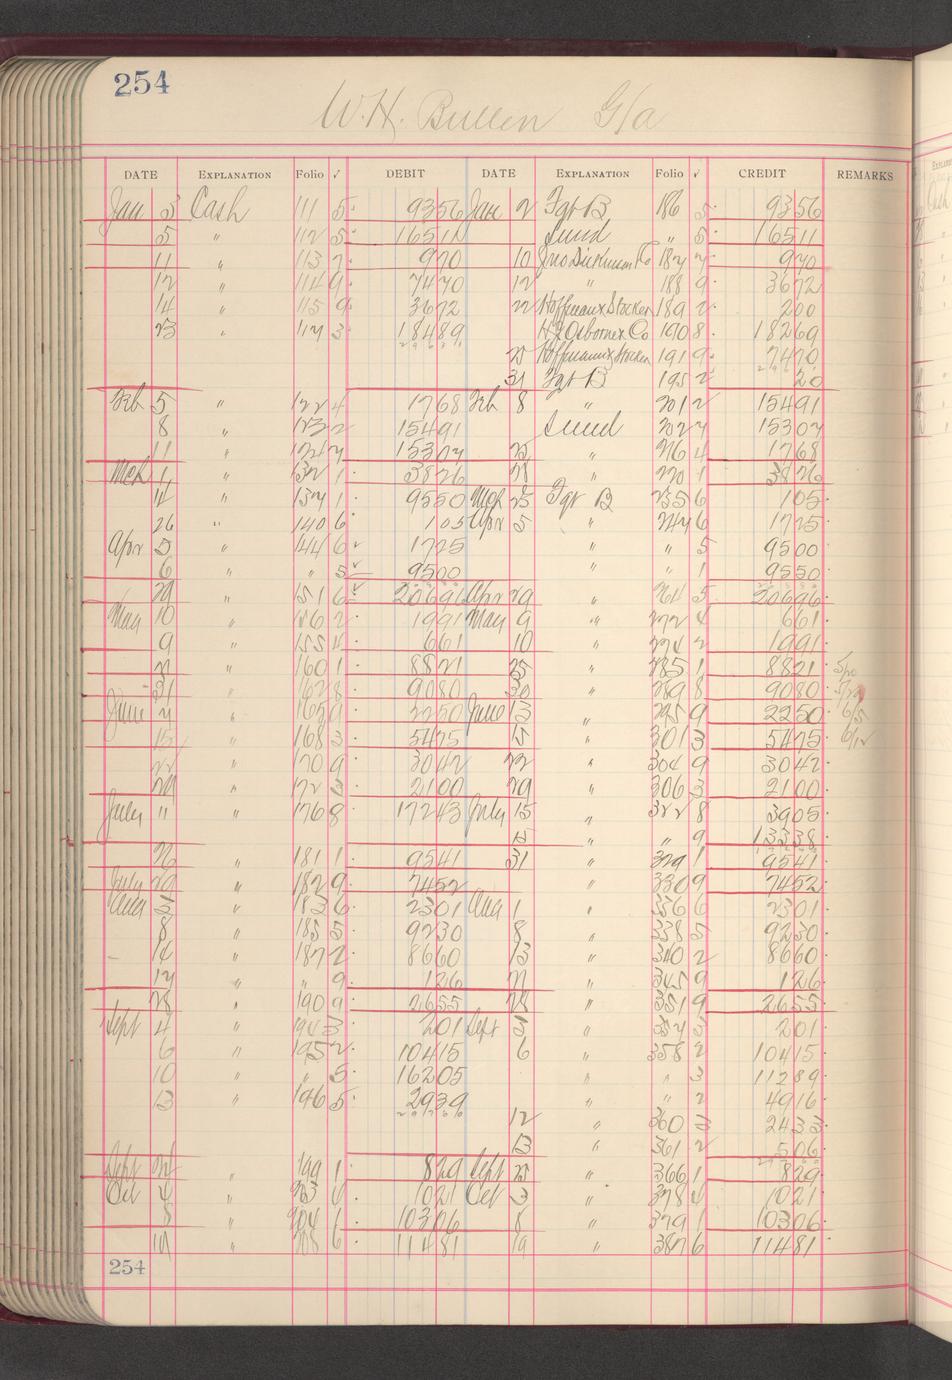 254
W. H. Bullen G/a
DATE EXPLANATION Folio √ DEBIT DATE EXPLANATION Folio √ CREDIT REMARKS
Jan 3 Cash 111 5 9356 Jan 2 Fgt B 186 5 9356
5 " 112 5 16511 Sund " 5 16511
11 " 113 7 970 10 187 7 970
12 " 114 9 7470 12 " 188 9 3672
14 " 115 9 3672 22 Hoffman & Stocker 189 2 200
23 " 117 3 18489 H F Osborne & Co 190 8 18269
25 Hoffman & Stocker 191 9 7470
31 Fgt B 195 2 20
Feb 5 " 122 4 1768 Feb 8 " 201 2 15491
8 " 123 2 15491 Sund 202 7 15307
11 " 124 7 15307 25 " 216 4 1768
Mch 1 " 132 1 3826 28 " 220 1 3826
4 " 137 1 9550 Mch 25 Fgt B 235 6 105
26 " 140 6 105 Apr 5 " 247 6 1725
Apr 5 " 144 6 √ 1725 " " 5 9500
6 " " 5 √ 9500 " 1 9550
29 " 151 6 √ 20696 Apr 29 " 264 5 20696
May 10 " 156 2 1991 May 9 " 272 4 661
9 " 155 4 661 10 " 274 2 1991
" 160 1 8821 25 " 285 1 8821
31 " 162 8 9080 30 " 289 8 9080
June 7 " 165 9 2250 June 13 " 295 9 2250
15 " 168 3 5475 15 " 301 3 5475
22 " 170 9 3042 22 " 304 9 3042
29 " 172 3 2100 29 " 306 3 2100
July 11 " 176 8 17243 July 15 " 322 8 3905
15 " " 9 13338
26 " 181 1 9541 31 " 329 1 9541
July 29 " 182 9 7452 " 330 9 7452
Aug 3 " 183 6 2301 Aug 1 " 336 6 2301
8 " 185 5 9230 8 " 338 5 9230
14 " 187 2 8660 13 " 340 2 8660
17 " " 9 126 21 " 345 9 126
28 " 190 9 2655 28 " 351 9 2655
Sept 4 " 194 3 201 Sept 3 " 357 3 201
6 " 195 2 10415 6 " 358 2 10415
10 " " 5 16205 " " 3 11289
13 " 196 5 2939 " " 2 4916
12 " 360 3 2433
13 " 361 2 506
Sept " 199 1 829 Sept 25 " 366 1 829
Oct 4 " 203 4 1021 Oct 3 " 378 4 1021
8 " 204 1 10306 8 " 379 1 10306
19 " 208 6 11481 19 " 387 6 11481
254